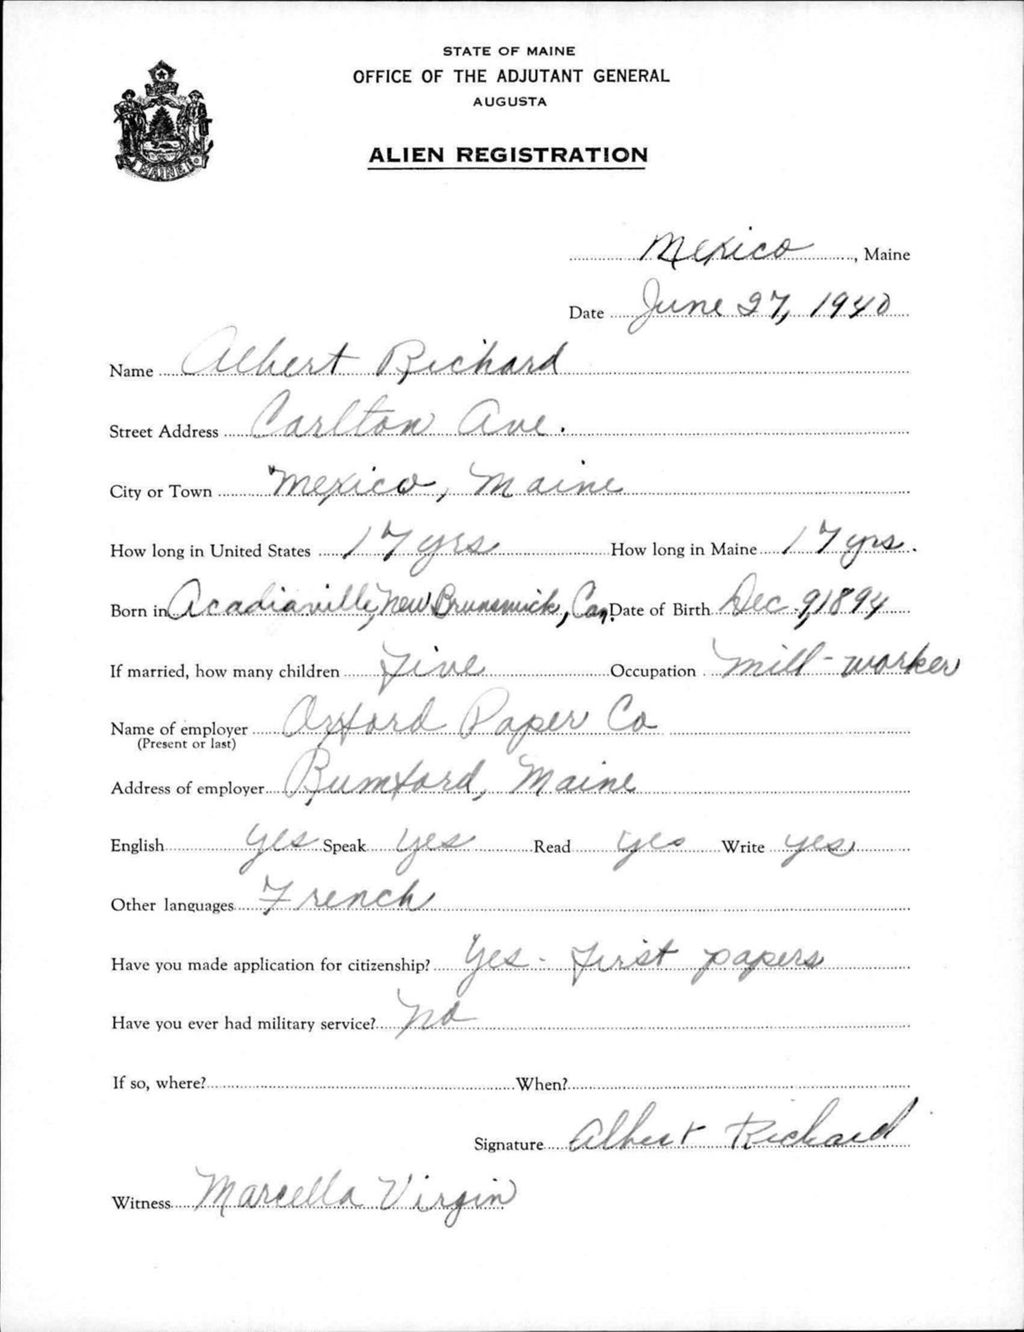 STATE OF MAINE
OFFICE OF THE ADJUTANT GENERAL
AUGUSTA
ALIEN REGISTRATION
MAINE
Mexico, Maine
Date June 27, 1940
Name Albert Richard
Street Address Carlton Ave.
City or Town Mexico, Maine
How long in United States 17 yrs How long in Maine 17 yrs.
Born in Acadiaville, New Brunswick, Can. Date of Birth Dec. 9, 1894
If married, how many children Five Occupation Mill-worker
Name of employer Oxford Paper Co
(Present or last)
Address of employer Rumford, Maine
English yes Speak yes Read yes Write yes
Other languages French
Have you made application for citizenship? Yes - First papers
Have you ever had military service? No
If so, where? When?
Signature Albert Richard
Witness Marcella Virgin